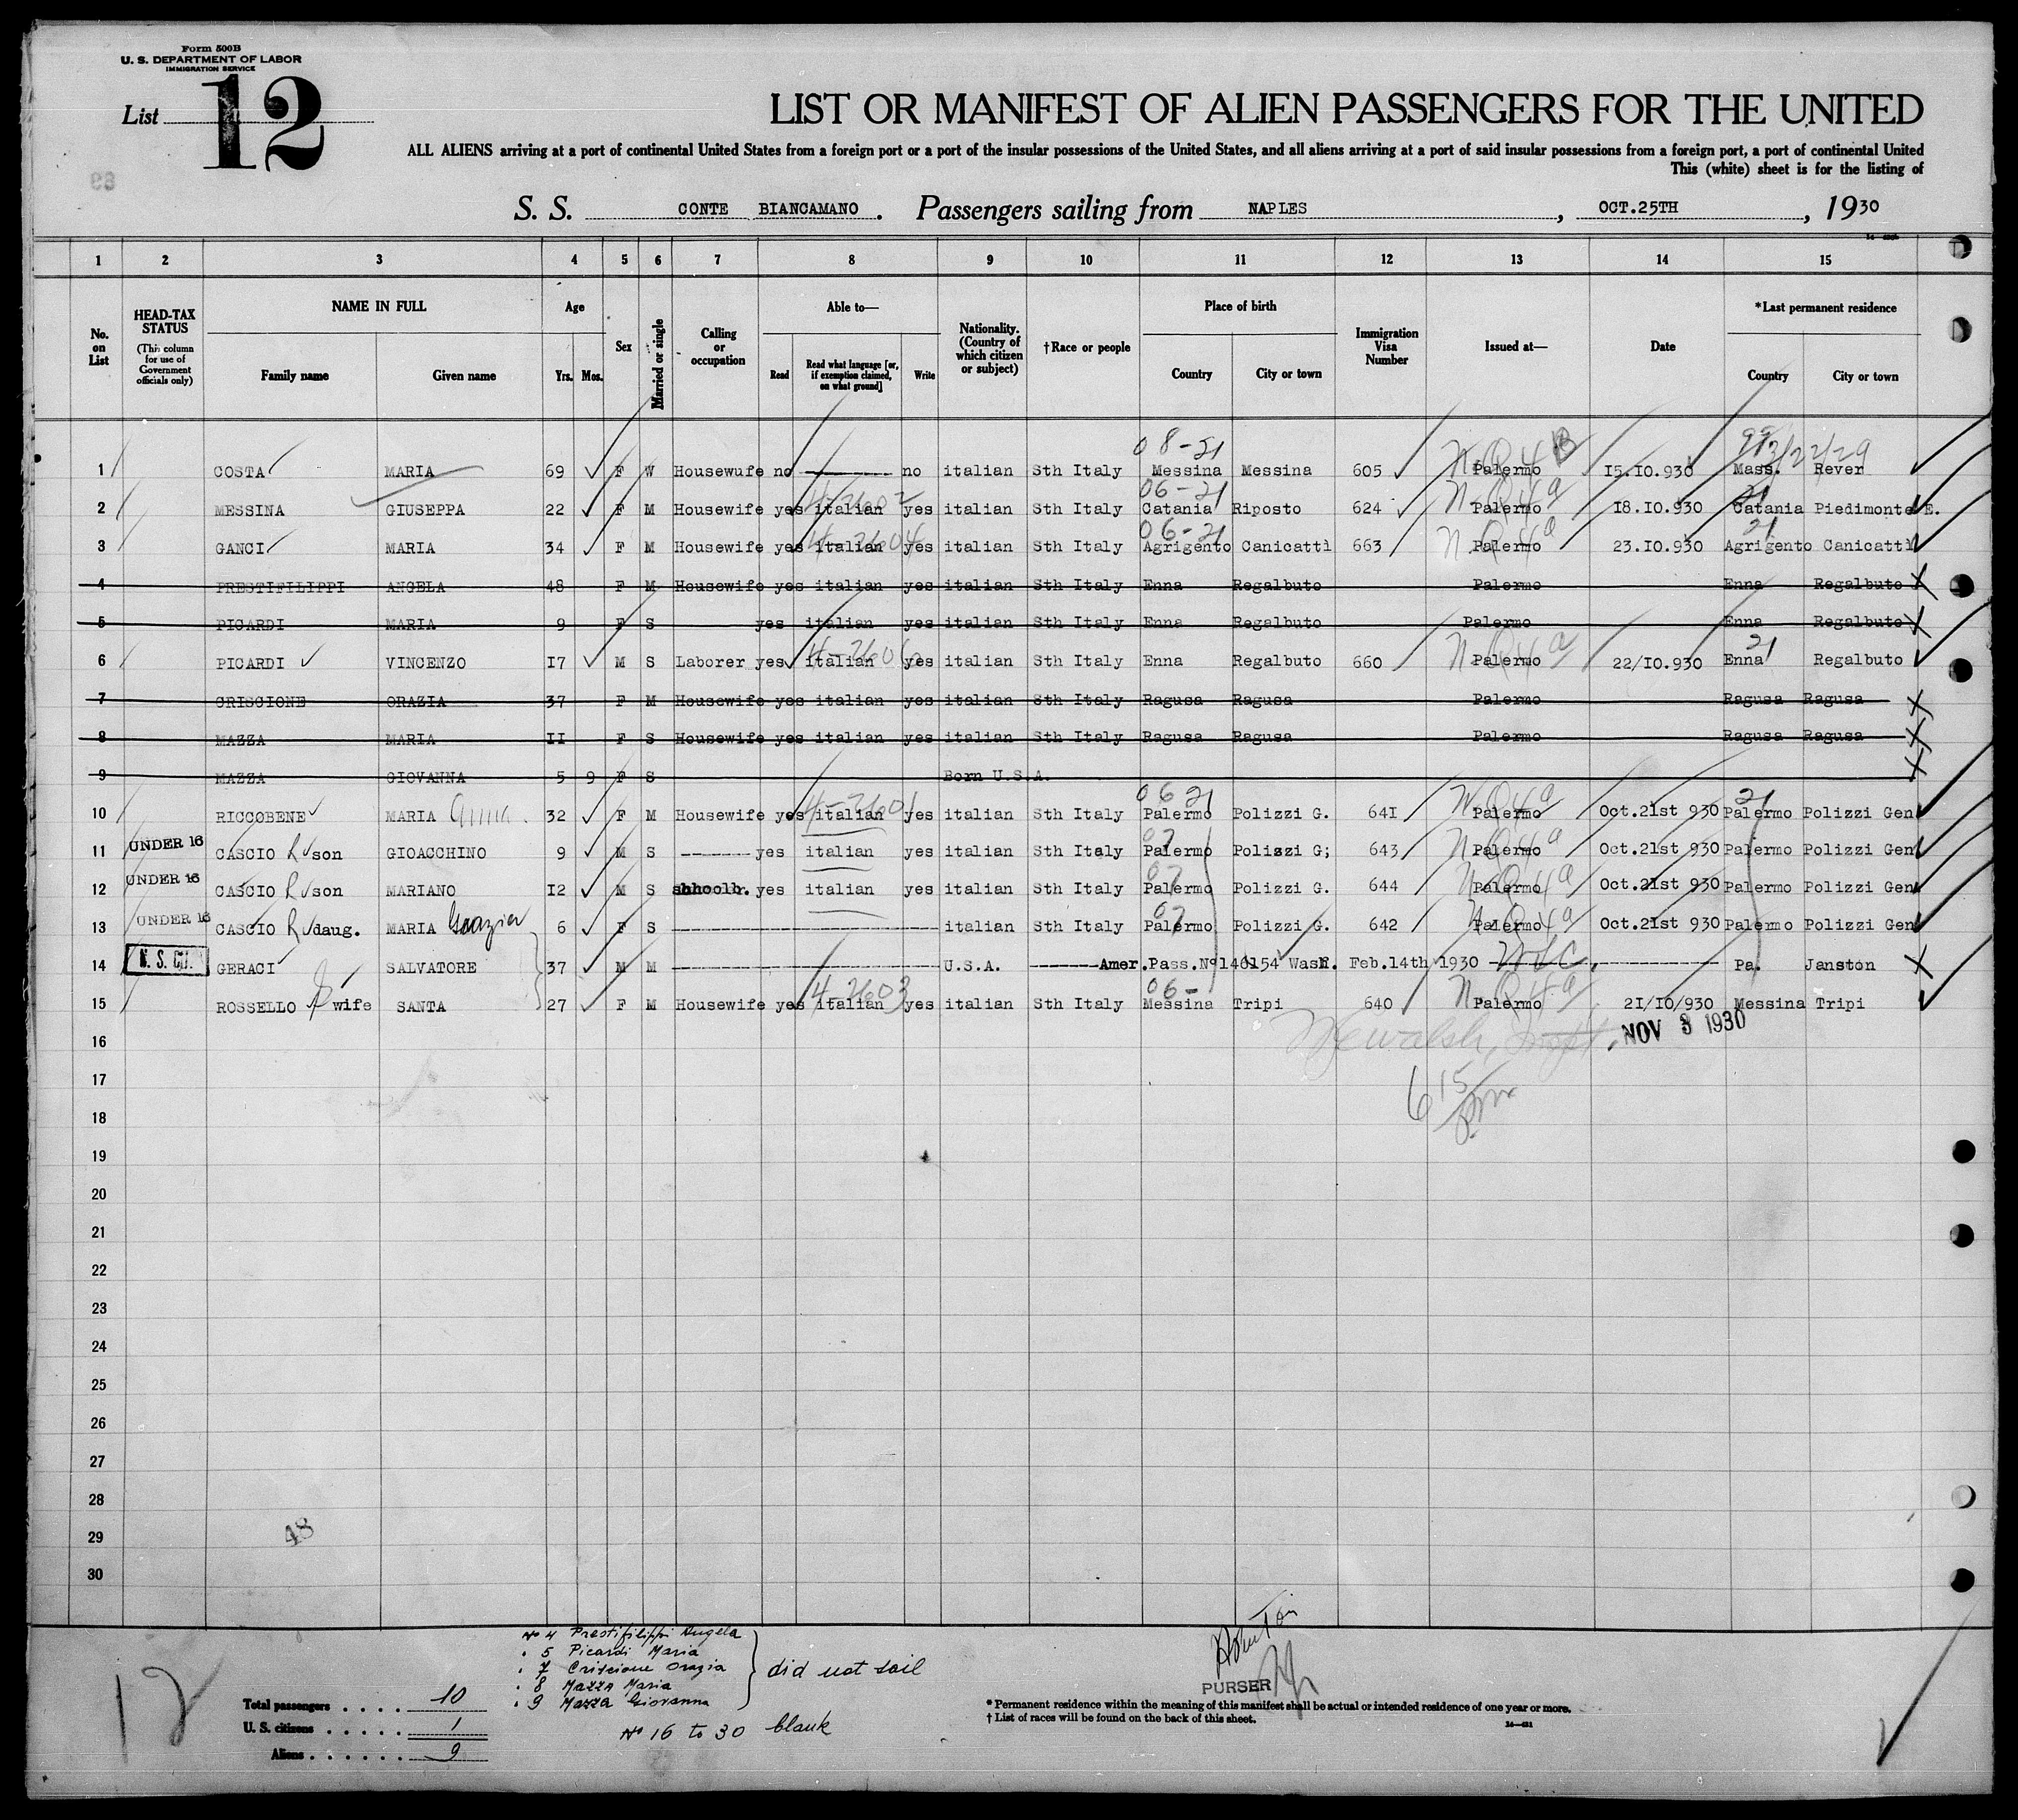 Form 500B
U. S. DEPARTMENT OF LABOR
IMMIGRATION SERVICE
List 12
LIST OR MANIFEST OF ALIEN PASSENGERS FOR THE UNITED
ALL ALIENS arriving at a port of continental United States from a foreign port or a port of the insular possessions of the United States, and all aliens arriving at a port of said insular possessions from a foreign port, a port of continental United
This (white) sheet is for the listing of
S. S. CONTE BIANCAMANO. Passengers sailing from NAPLES, OCT.25TH, 1930
1 2 3 4 5 6 7 8 9 10 11 12 13 14 15
No. on List
HEAD-TAX STATUS (This column for use of Government officials only)
NAME IN FULL Family name Given name
Age Yrs. Mos.
Sex
Married or single
Calling or occupation
Able to— Read Read what language [or, if exemption claimed, on what ground] Write
Nationality. (Country of which citizen or subject)
†Race or people
Place of birth Country City or town
Immigration Visa Number
Issued at—
Date
*Last permanent residence Country City or town
08-21
1 COSTA MARIA 69 F W Housewufe no -------- no italian Sth Italy Messina Messina 605 Palermo 15.10.930 Mass. Rever
4-2602 06-21 NQ4a 21
2 MESSINA GIUSEPPA 22 F M Housewife yes italian yes italian Sth Italy Catania Riposto 624 Palermo 18.10.930 Catania Piedimonte E.
4-2604 06-21 NQ4a 21
3 GANCI MARIA 34 F M Housewife yes italian yes italian Sth Italy Agrigento Canicattì 663 Palermo 23.10.930 Agrigento Canicattì
4 PRESTIFILIPPI ANGELA 48 F M Housewife yes italian yes italian Sth Italy Enna Regalbuto Palermo Enna Regalbuto
5 PICARDI MARIA 9 F S yes italian yes italian Sth Italy Enna Regalbuto Palermo Enna Regalbuto
6 PICARDI VINCENZO 17 M S Laborer yes italian yes italian Sth Italy Enna Regalbuto 660 NQ4a Palermo 22/10.930 21 Enna Regalbuto
7 CRISCIONE ORAZIA 37 F M Housewife yes italian yes italian Sth Italy Ragusa Ragusa Palermo Ragusa Ragusa
8 MAZZA MARIA 11 F S Housewife yes italian yes italian Sth Italy Ragusa Ragusa Palermo Ragusa Ragusa
9 MAZZA GIOVANNA 5 9 F S Born U.S.A.
4-2601 06 21 NQ4a 21
10 RICCOBENE MARIA Anna 32 F M Housewife yes italian yes italian Sth Italy Palermo Polizzi G. 641 Palermo Oct.21st 930 Palermo Polizzi Gen
UNDER 16 07 NQ4a
11 CASCIO R son GIOACCHINO 9 M S ------- yes italian yes italian Sth Italy Palermo Polizzi G; 643 Palermo Oct.21st 930 Palermo Polizzi Gen
UNDER 16 07 NQ4a
12 CASCIO R son MARIANO 12 M S yes italian yes italian Sth Italy Palermo Polizzi G. 644 Palermo Oct.21st 930 Palermo Polizzi Gen
UNDER 16 07 NQ4a
13 CASCIO R daug. MARIA Grazia 6 F S -------- italian Sth Italy Palermo Polizzi G. 642 Palermo Oct.21st 930 Palermo Polizzi Gen
14 GERACI SALVATORE 37 M M -------- U.S.A. ------- Amer.Pass.Nº140154 Wash. Feb.14th 1930 -------- Pa. Janston
4-2603 06- NQ4a
15 ROSSELLO wife SANTA 27 F M Housewife yes italian yes italian Sth Italy Messina Tripi 640 Palermo 21/10/930 Messina Tripi
16 NOV 3 1930
17 6 15
18 pm
19
20
21
22
23
24
25
26
27
28
29 48
30
Nº 4 Prestifilippi Angela
" 5 Picardi Maria
" 7 Criscione Orazia
" 8 Mazza Maria
" 9 Mazza Giovanna
did not sail
Nº 16 to 30 blank
12
Total passengers . . . . 10
U. S. citizens . . . . . 1
Aliens . . . . . . 9
PURSER
* Permanent residence within the meaning of this manifest shall be actual or intended residence of one year or more.
† List of races will be found on the back of this sheet.
14—421